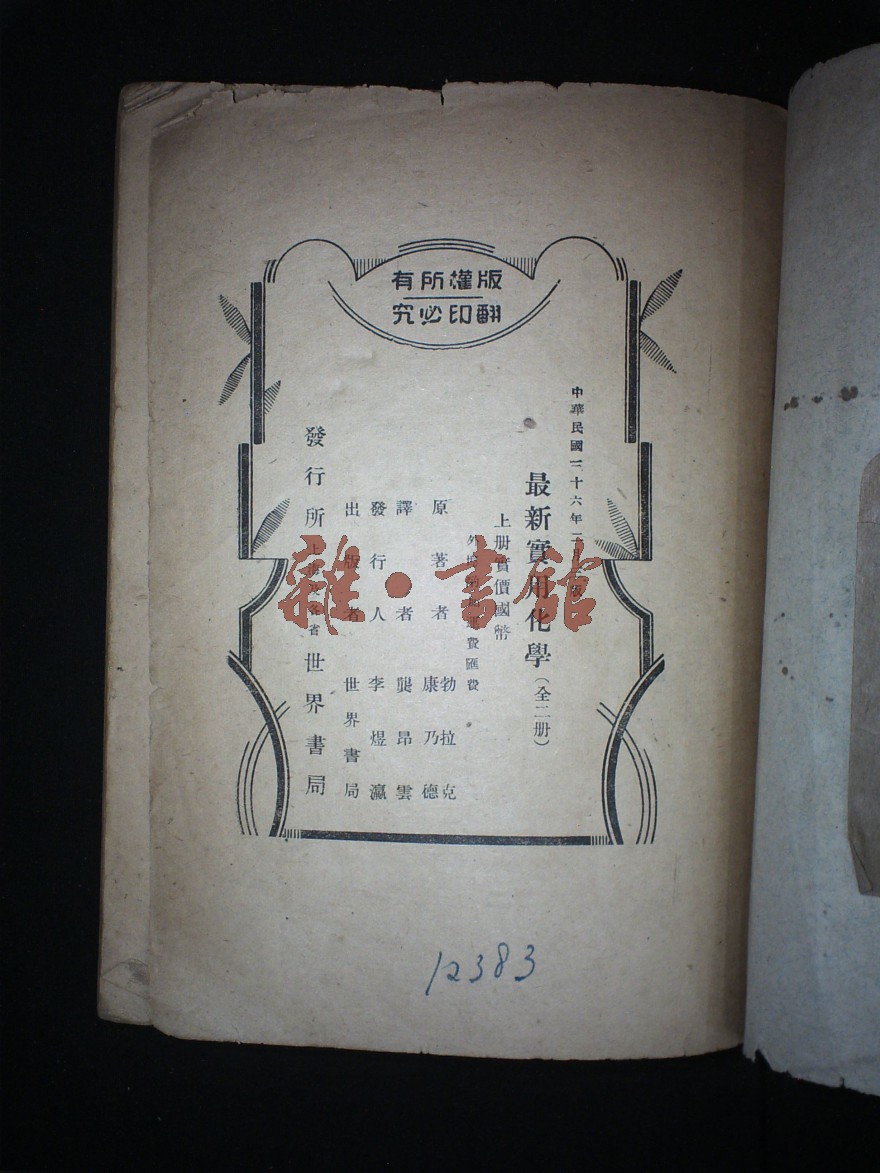 版權所有
翻印必究
中華民國三十六年
最新實用化學(全二册)
上册實價國幣
運費匯費
原著者 勃拉克 康乃德
譯者 龔昂雲
發行人 李煜瀛
出版者 世界書局
發行所 上海及各省 世界書局
雜·書館
12383